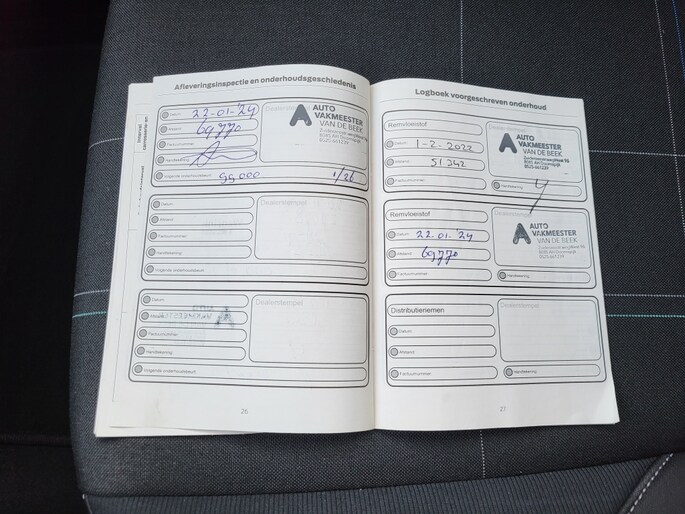 Afleveringsinspectie en onderhoudsgeschiedenis
Datum 22-01-'24
Afstand 69770
Factuurnummer
Handtekening
Volgende onderhoudsbeurt 99.000 1/26
Dealerstempel
AUTO
VAKMEESTER
VAN DE BEEK
Datum
Afstand
Factuurnummer
Handtekening
Volgende onderhoudsbeurt
Dealerstempel
Datum
Afstand
Factuurnummer
Handtekening
Volgende onderhoudsbeurt
Dealerstempel
26
Logboek voorgeschreven onderhoud
Remvloeistof
Datum 1-2-2022
Afstand 51342
Factuurnummer
AUTO
VAKMEESTER
VAN DE BEEK
Handtekening
Remvloeistof
Datum 22-01-'24
Afstand 69770
Factuurnummer
AUTO
VAKMEESTER
VAN DE BEEK
Handtekening
Distributieriemen
Datum
Afstand
Factuurnummer
Dealerstempel
Handtekening
27